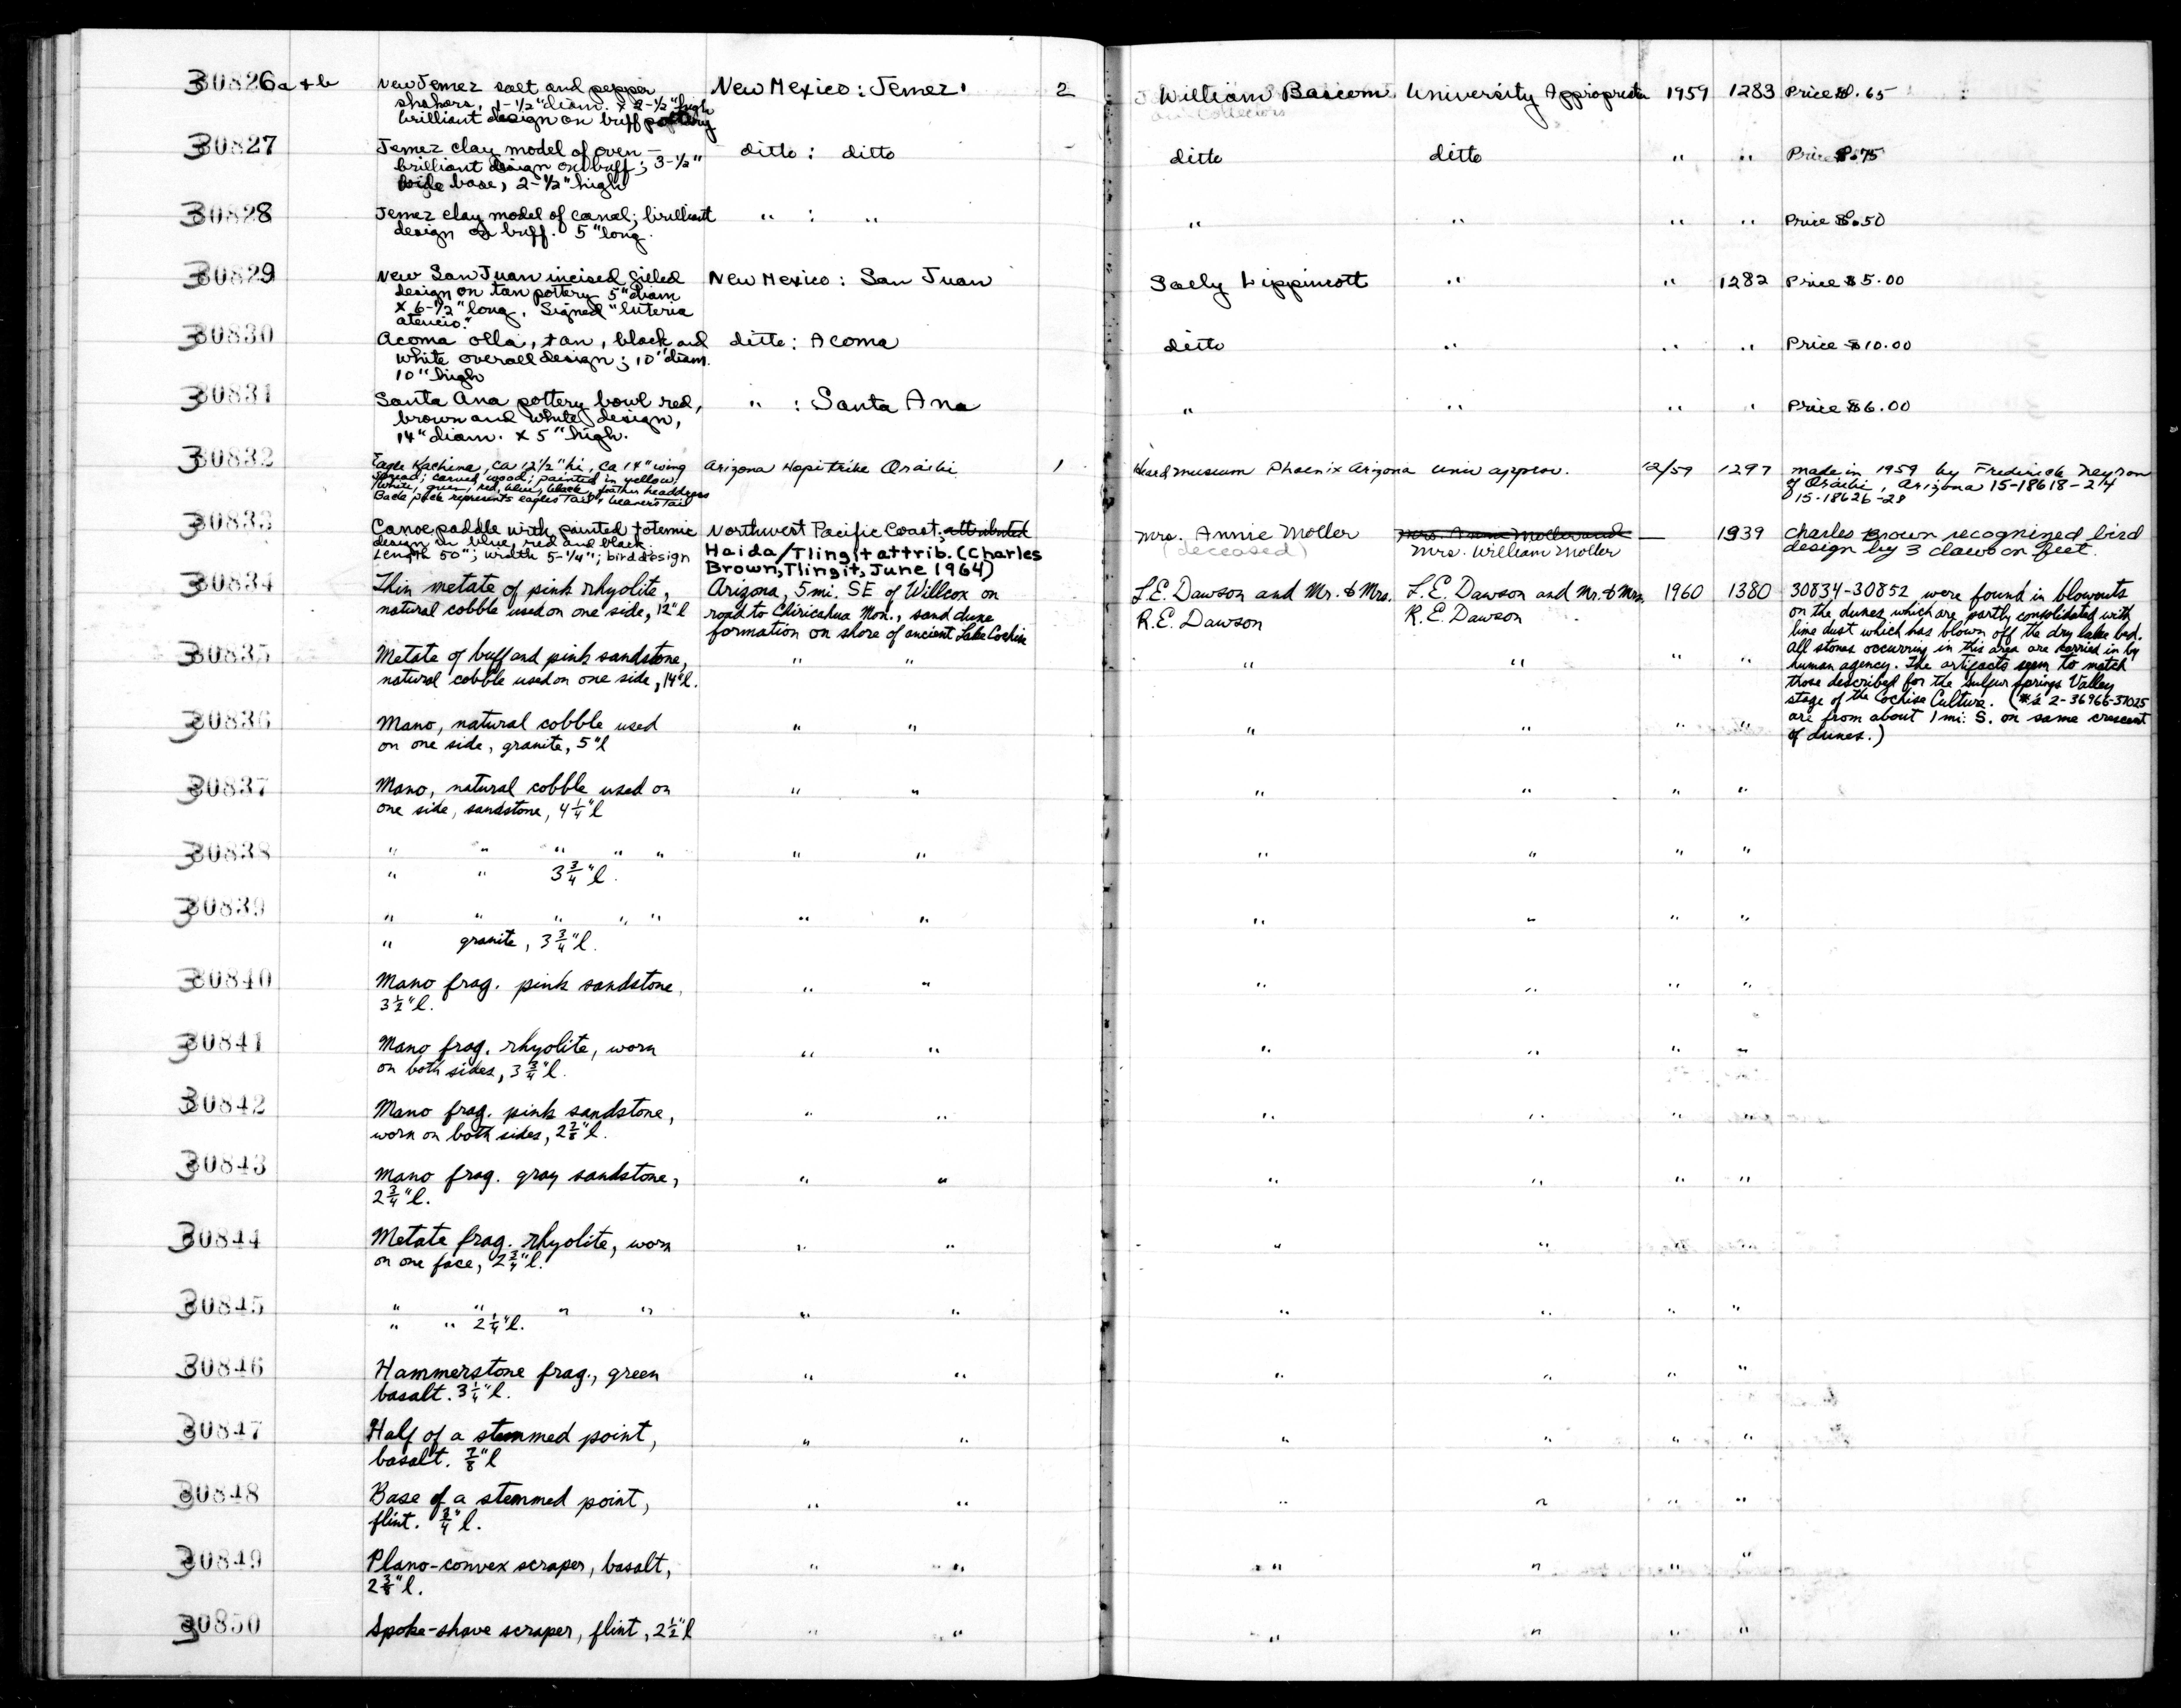 30826a+b New Jemez salt and pepper New Mexico: Jemez 2 William Bascom University Appropriatn 1959 1283 Price $1.65
shakers, 1-1/2" diam. x 2-1/2" high
brilliant design on buff pottery
30827 Jemez clay model of oven — ditto : ditto ditto ditto " " Price $.75
brilliant design on buff; 3-1/2"
wide base, 2-1/2" high
30828 Jemez clay model of canal; brilliant " : " " " " " Price $.50
design on buff. 5" long.
30829 New San Juan incised filled New Mexico: San Juan Sally Lippincott " " 1282 Price $5.00
design on tan pottery 5" diam
x 6-1/2" long. Signed "luteria
atencio."
30830 Acoma olla, tan, black and ditto: Acoma ditto " " " Price $10.00
white overall design; 10" diam.
10" high
30831 Santa Ana pottery bowl red, " : Santa Ana " " " " Price $6.00
brown and white design,
14" diam. x 5" high.
30832 Eagle Kachina, ca 12½" hi, ca 14" wing Arizona Hopi tribe Oraibi 1 Heard museum Phoenix Arizona Univ approp. 12/59 1297 made in 1959 by Frederick
spread; carved wood; painted in yellow, of Oraibi, Arizona 15-18618-24
white, green, red, blue, black, feather headdress 15-18626-28
Back pack represents eagles tail
30833 Canoe paddle with painted totemic Northwest Pacific Coast. attributed Mrs. Annie Moller — 1939 Charles Brown recognized bird
design in blue, red and black. Haida/Tlingit attrib. (Charles (deceased) Mrs. William Moller design by 3 claws on feet.
Length 50"; width 5-1/4"; bird design Brown, Tlingit, June 1964)
30834 Thin metate of pink rhyolite, Arizona, 5 mi. SE of Willcox on L.E. Dawson and Mr. & Mrs. L.E. Dawson and Mr. & Mrs. 1960 1380 30834-30852 were found in blowouts
natural cobble used on one side, 12" l road to Chiricahua Mon., sand dune R.E. Dawson R.E. Dawson on the dunes which are partly consolidated with
formation on shore of ancient Lake Cochise lime dust which has blown off the dry lake bed.
30835 Metate of buff and pink sandstone, " " " " " " All stones occurring in this area are carried in by
natural cobble used on one side, 14" l. human agency. The artifacts seem to match
those described for the Sulfur Springs Valley
stage of the Cochise Culture. (#'s 2-36966-37025
30836 Mano, natural cobble used " " " " " " are from about 1 mi. S. on same crescent
on one side, granite, 5" l of dunes.)
30837 Mano, natural cobble used on " " " " " "
one side, sandstone, 4¼" l
30838 " " " " " " " " " " "
" " 3¾" l.
30839 " " " " " " " " " " "
" granite, 3¾" l.
30840 Mano frag. pink sandstone, " " " " " "
3½" l.
30841 Mano frag. rhyolite, worn " " " " " "
on both sides, 3¾" l.
30842 Mano frag. pink sandstone, " " " " " "
worn on both sides, 2⅞" l.
30843 Mano frag. gray sandstone, " " " " " "
2¾" l.
30844 Metate frag. rhyolite, worn " " " " " "
on one face, 2¾" l.
30845 " " " " " " " " " "
" " 2¼" l.
30846 Hammerstone frag., green " " " " " "
basalt. 3¼" l.
30847 Half of a stemmed point, " " " " " "
basalt. ⅞" l
30848 Base of a stemmed point, " " " " " "
flint. ¾" l.
30849 Plano-convex scraper, basalt, " " " " " "
2⅜" l.
30850 Spoke-shave scraper, flint, 2½" l " " " " " "